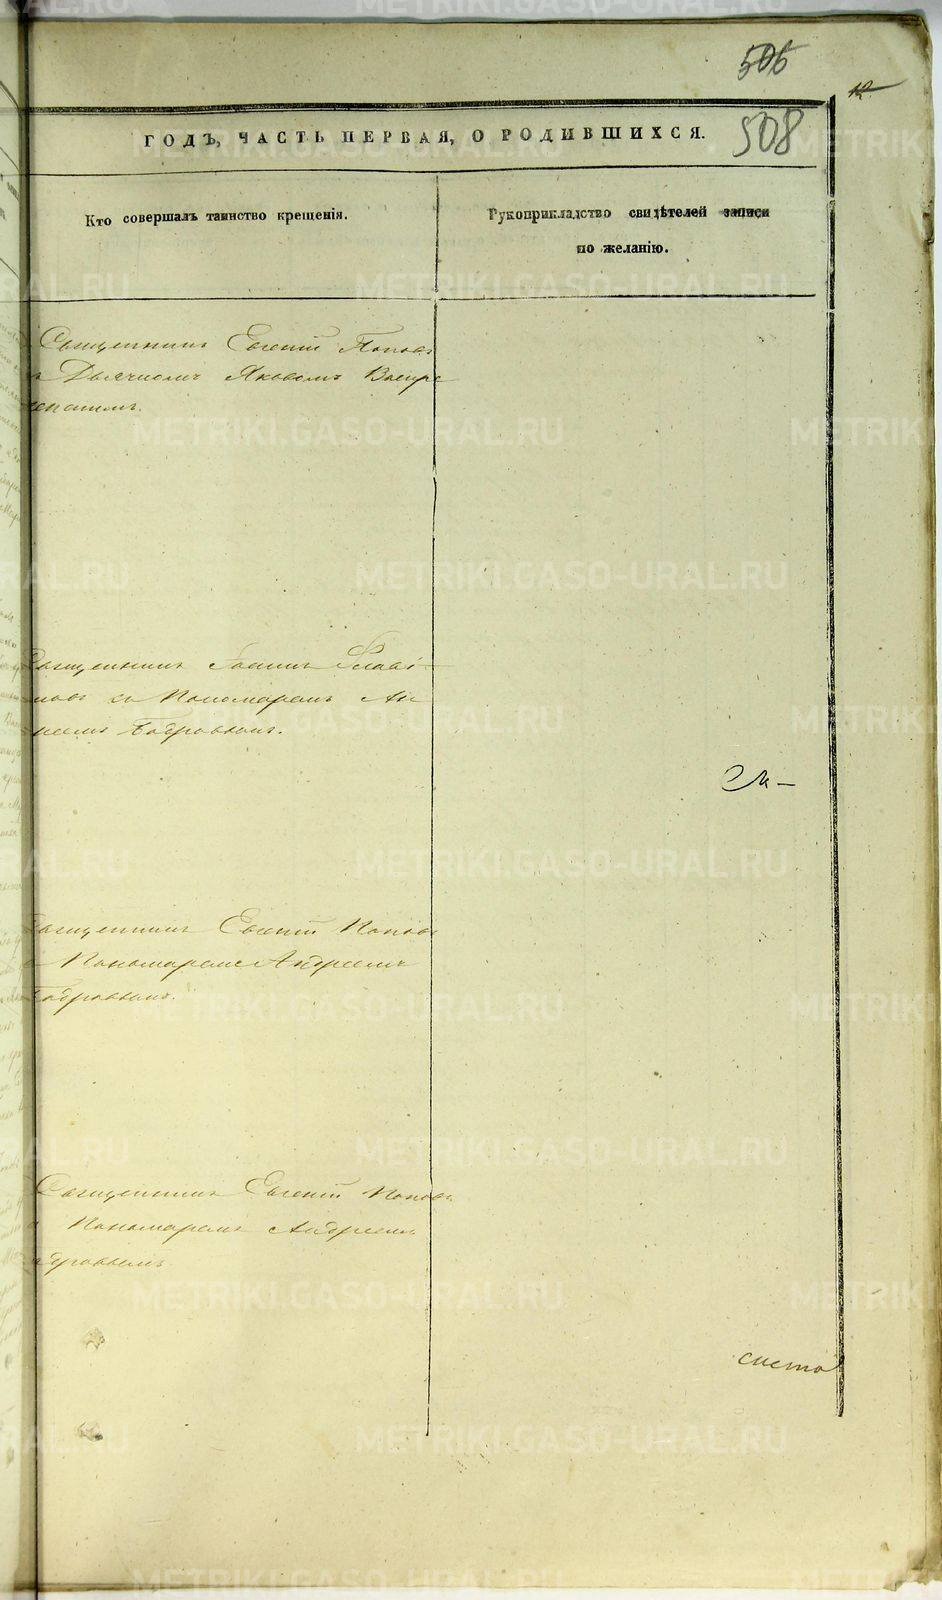 506
12.
508
ГОДЪ, ЧАСТЬ ПЕРВАЯ, О РОДИВШИХСЯ.
Кто совершалъ таинство крещенія.
Рукоприкладство свидѣтелей записи
по желанію.
Священникъ Евгеній Поповъ
Дьячкомъ Яковомъ Воскре
Священникъ Іоаннъ Слові-
новъ съ Пономаремъ Ан
реемъ Бобровымъ.
Священникъ Евгеній Поповъ
Пономаремъ Андреемъ
Бобровымъ.
Священникъ Евгеній Поповъ
Пономаремъ Андреемъ
обровымъ
METRIKI.GASO-URAL.RU